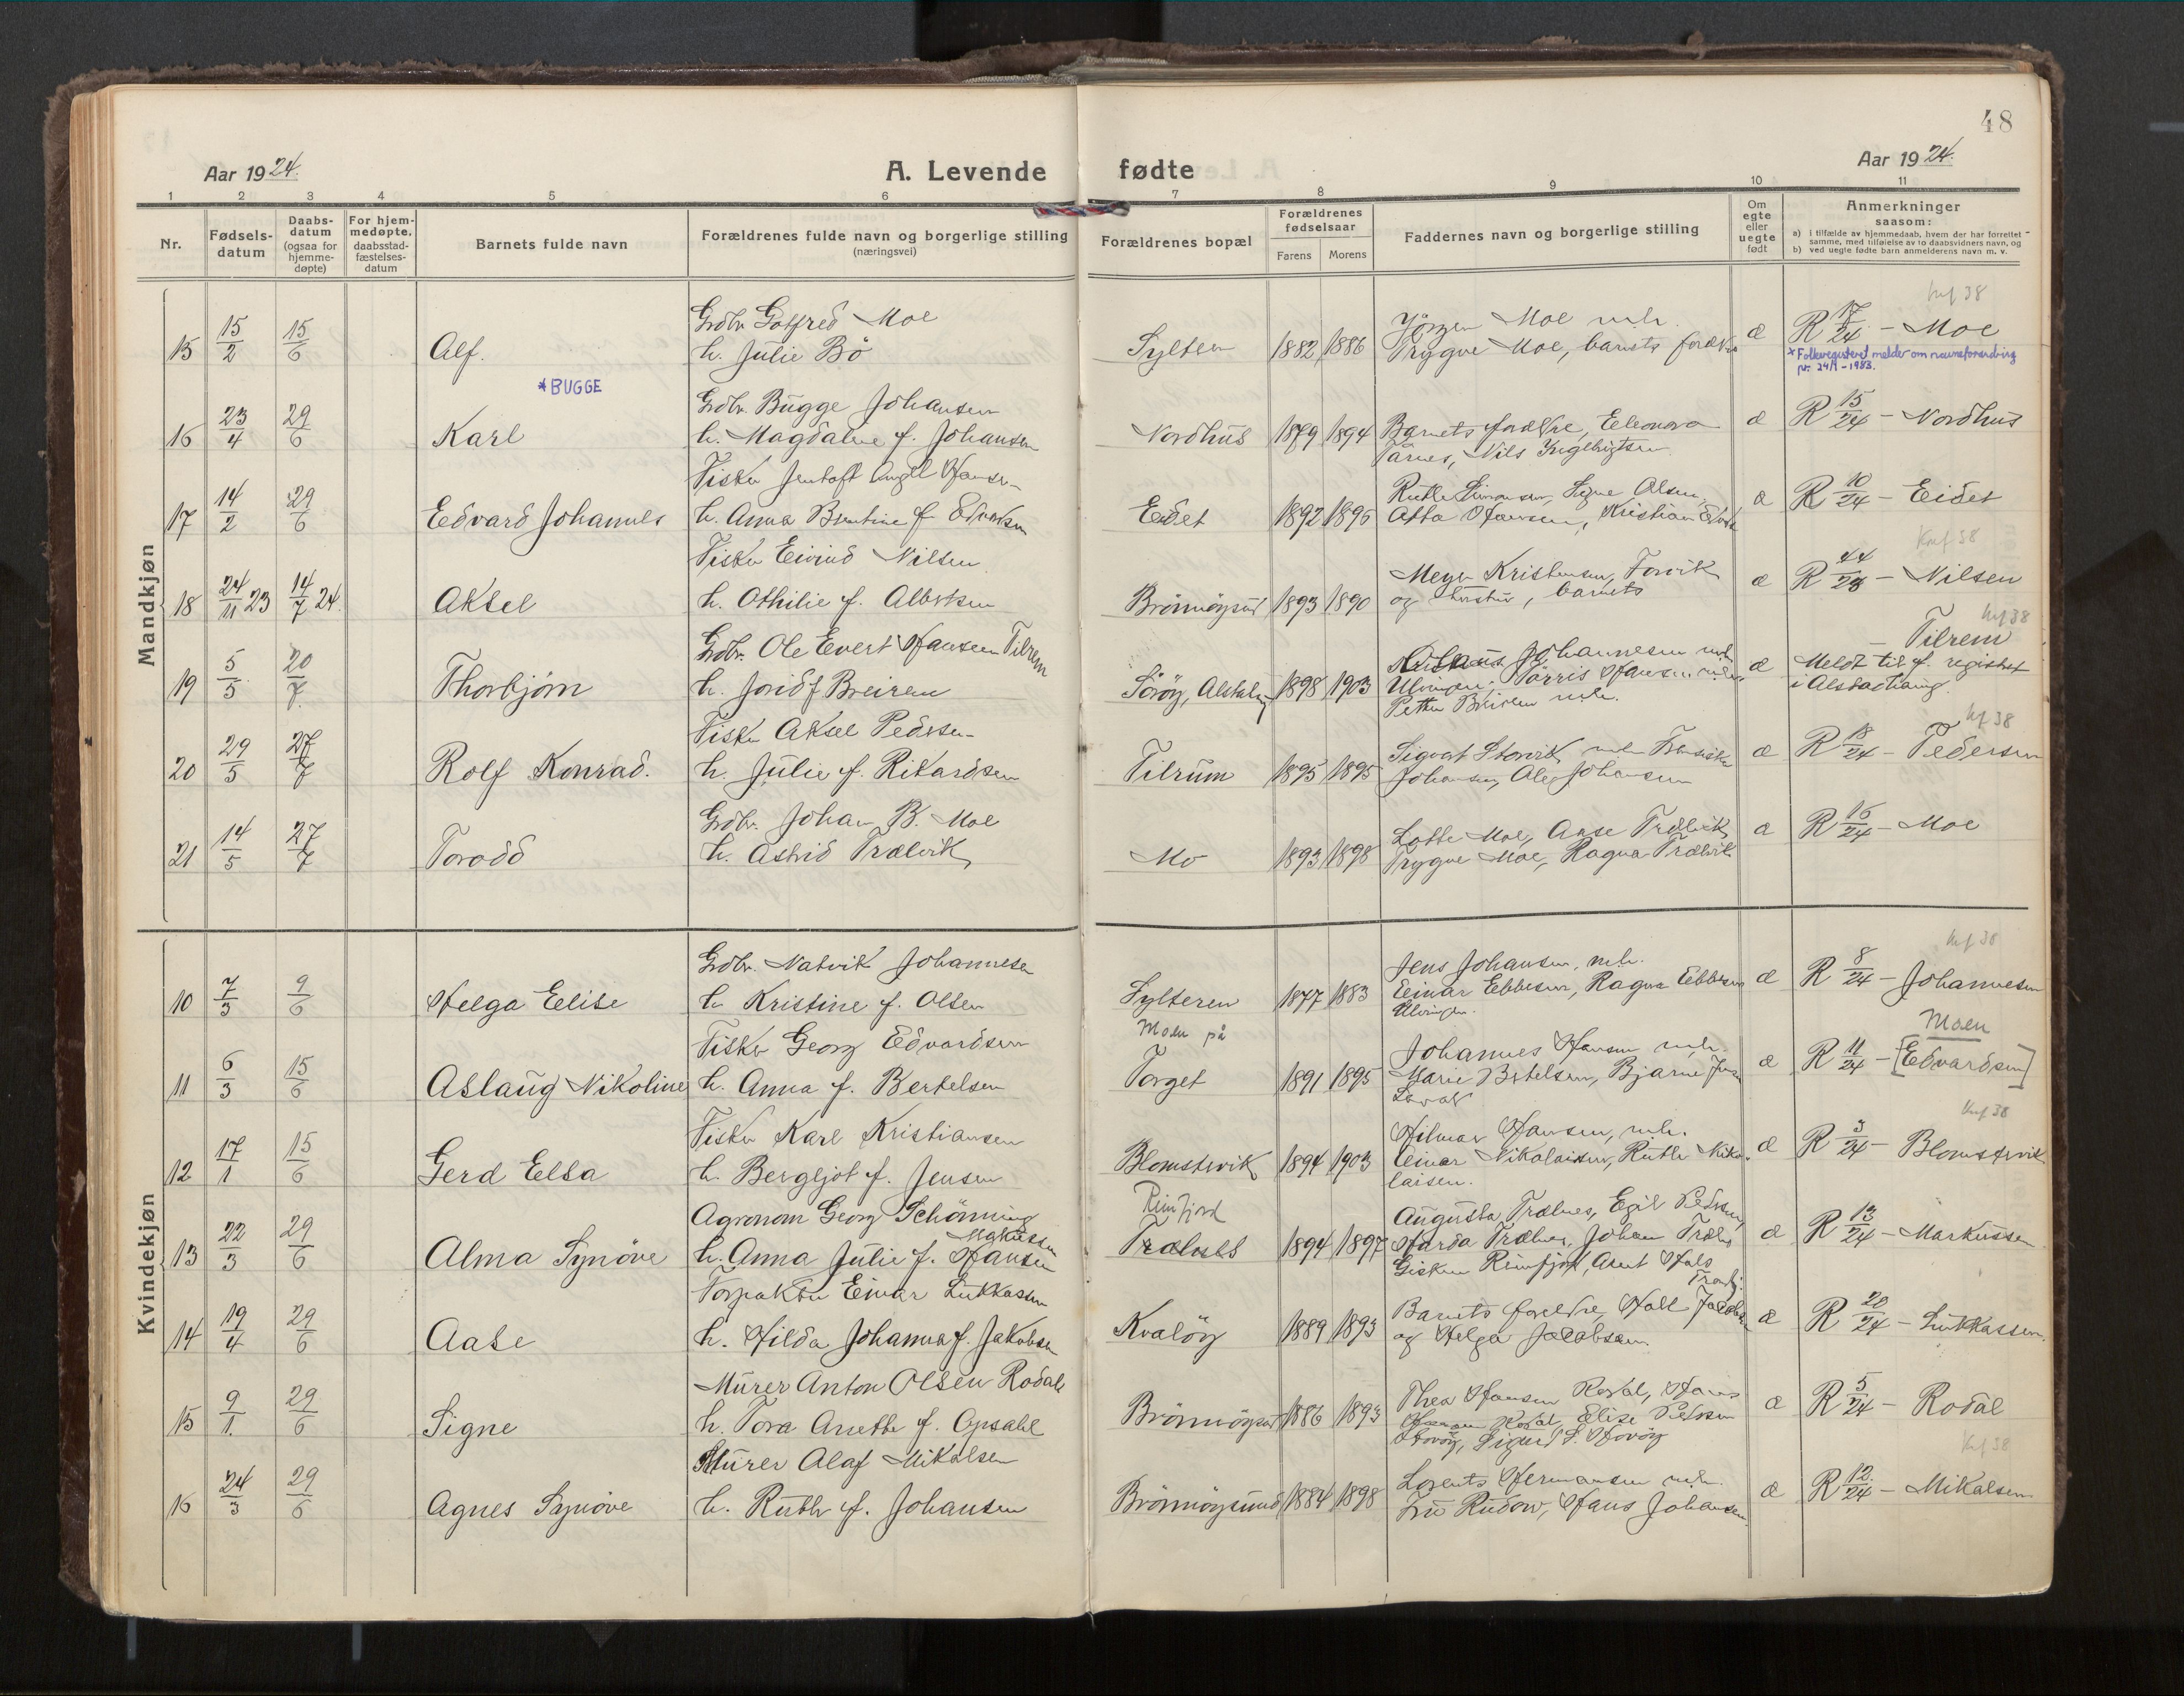 48
Aar 1924.
A. Levende fødte
Aar 1924.
1 2 3 4 5 6 7 8 9 10 11
Nr.
Fødsels-
datum
Daabs-
datum
(ogsaa for
hjemme-
døpte)
For hjem-
medøpte,
daabsstad-
fæstelses-
datum
Barnets fulde navn
Forældrenes fulde navn og borgerlige stilling
(næringsvei)
Forældrenes bopæl
Forældrenes
fødselsaar
Farens Morens
Faddernes navn og borgerlige stilling
Om
egte
eller
uegte
født
Anmerkninger
saasom:
a) i tilfælde av hjemmedaab, hvem der har forrettet
samme, med tilføielse av to daabsvidners navn, og
b) ved uegte fødte barn anmelderens navn m. v.
Mandkjøn
15 15/2 15/6 Alf.
Grdbr. Gotfred Moe
h. Julie Bö
1882 1886
Jörgen Moe mh.
Trygve Moe, barnets
æ R 17/24 - Moe
* Folkeregisteret melder om navneforandring
pr. 24/1 - 1983.
* BUGGE
16 23/4 29/6 Karl
Grdbr. Bugge Johansen
h. Magdalene f. Johansen
Nordhus 1879 1894
Barnets forældre, Eleonora
Tårnes, Nils Ingebrigtsen
æ R 15/24 - Nordhus
17 14/2 29/6 Edvard Johannes
Fisker Jentoft Angell Hansen
h. Anna Bentine f. Edvardsen
Eidet 1892 1895
Ruth Simonsen, Signe Olsen,
Hansen, Kristian
æ R 10/24 - Eidet
Konf 38
18 24/11 23 14/7 24. Aksel
Fisker Eivind Nilsen
h. Othilie f. Albertsen
Brönnöysund 1893 1890
Meyer Kristensen, Forvik
og hustru, barnets
æ R 44/23 - Nilsen
19 5/5 20/7 Thorbjörn
Grdbr. Ole Evert Hansen Tilrem
h. Jorid f. Breirem
Söröy, Alstahaug 1898 1903
Johannesen mh
Ulvingen, Hansen mh
Petter mh.
æ - Tilrem
Meldt til f. registret
i Alstadhaug.
20 29/5 27/7 Rolf Konrad.
Fisker Aksel Pedersen
h. Julie f. Rikardsen
Tilrum 1895 1895
Sigvat Storvik mh
Johansen, Johansen
æ R 18/24 - Pedersen
21 14/5 27/7 Torodd
Grdbr. Johan B. Moe
h. Astrid Trælvik
Mo 1893 1898
Lotte Moe, Aase Trælvik
Trygve Moe, Ragna Trælvik
æ R 16/24 - Moe
Kvindekjøn
10 7/3 9/6 Helga Elise
Grdbr. Natvik Johannesen
h. Kristine f. Olsen
Sylteren 1877 1883
Jens Johansen, mh.
Einar Ebbesen, Ragna Ebbesen
Ulvingen.
æ R 8/24 - Johannesen
11 6/3 15/6 Aslaug Nikoline
Fisker Georg Edvardsen
h. Anna f. Bertelsen
Moen på
Torget 1891 1895
Johannes Hansen mh.
Marie Bertelsen, Bjarne
æ R 11/24 - Moen [Edvardsen]
12 17/1 15/6 Gerd Elsa
Fisker Karl Kristiansen
h. Bergljot f. Jensen
Blomstervik 1894 1903
Hilmar Hansen, mh.
Einar Nikolaisen, Ruth Niko-
laisen.
æ R 3/24 - Blomstervik
13 22/3 29/6 Alma Synöve
Agronom Georg Schönning
Markussen
h. Anna Julie f. Hansen
Reinfjord
Trælnes 1894 1897
Augusta Trælnes, Egil Pedersen,
Harda Trælnes, Johan Trælnes
Gisken Reinfjord,
æ R 13/24 - Markussen
14 19/4 29/6 Aase
Forpakter Einar Lukkassen
h. Hilda Johanna f. Jakobsen
Kvalöy 1889 1893
Barnets forældre, Hall Jacobsen
og Helga Jacobsen.
æ R 20/24 - Lukkassen.
15 9/1. 29/6 Signe
Murer Anton Olsen Rodal
h. Tora Anette f. Opsahl
Brönnöysund 1886 1893
Thea Hansen Rodal, Hans
Rodal, Elise Pedersen
Sigurd S.
æ R 5/24 - Rodal
16 24/3 29/6 Agnes Synöve
Murer Olaf Mikalsen
h. Ruth f. Johansen
Brönnöysund 1884 1898
Lorents Hermansen mh.
Fru Rudow, Hans Johansen.
æ R 12/24 - Mikalsen